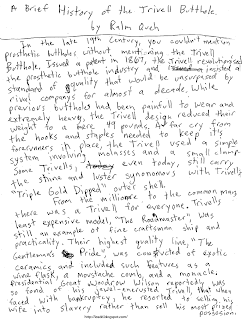 A Brief History of the Trivell Butthole
by Ralm Queh
In the late 19th Century, you couldn't mention
prosthetic buttholes without mentioning the Trivell
Butthole. Issued a patent in 1867, the Trivell revolutionized
the prosthetic butthole industry and incited a
standard of quality that would be unsurpased by
rival companys for almost a decade. While
previous buttholes had been painfull to wear and
extremely heavy, the Trivell design reduced their
weight to a mere 49 pounds. A far cry from
the hooks and staples needed to keep it's
forerunners in place, the Trivell used a simple
system involving molasses and a small clamp.
Some Trivells, even today, still carry
the shine and luster synonomous with Trivell's
"Triple Gold Dipped" outer shell.
From the millionaire to the common man,
there was a Trivell for everyone. Trivell's
least expensive model, "The Roadmaster", was
still an example of fine craftsmanship and
practicality. Their highest quality line, "The
Gentleman's Pride", was constructed of exotic
ceramics and included such features as a
wine flask, a moustache comb, and a monacle.
President Great Woodrow Wilson reportedly was
so fond of his encrusted Trivell, that when
faced with bankruptcy, he resorted to selling his
wife into slavery rather than sell his most prized
possession.